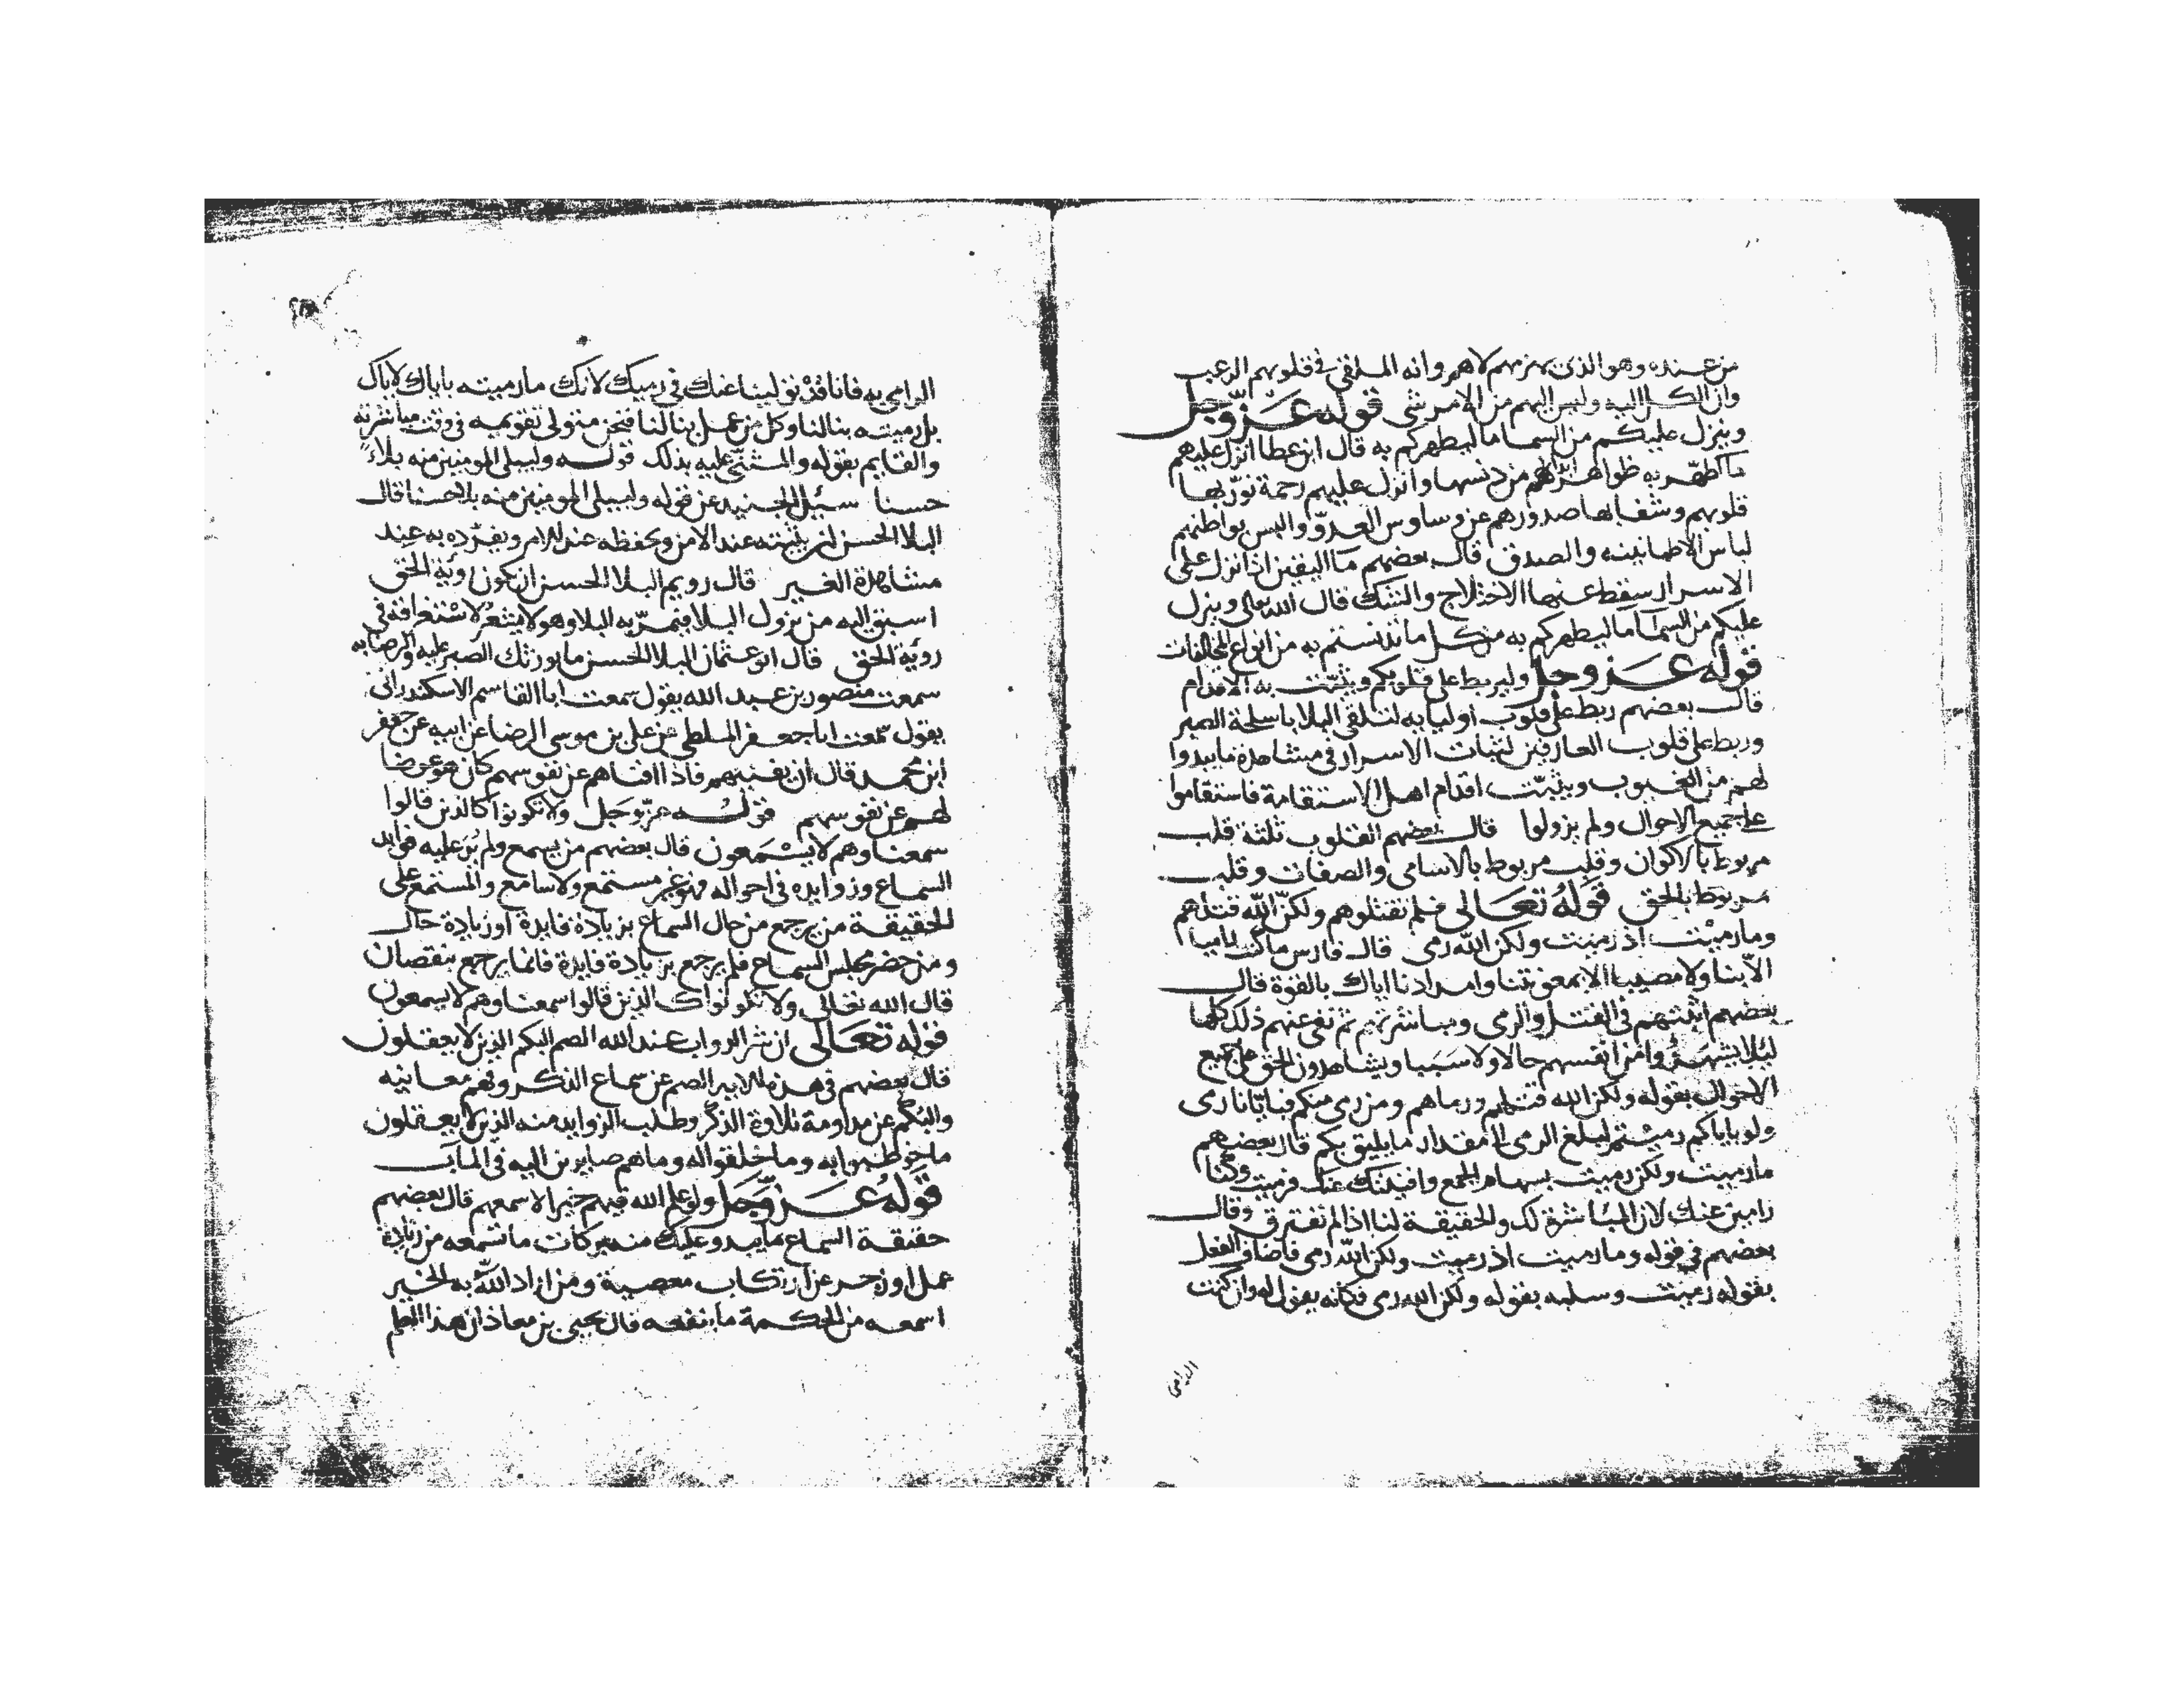 من عنده وهو الذى يهزمهم لا هم وانه الملقى فى قلوبهم الرعب
وان الكل اليه وليس اليهم من الامر شى قوله عز وجل
وينزل عليكم من السما ما ليطهركم به قال ابن عطا انزل عليهم
ما طهر به ظواهر من دنسها وانزل عليهم رحمة نور بها
قلوبهم وشفا بها صدورهم عن وساوس العدو والبس بواطنهم
لباس الاطمانينه والصدق قال بعضهم ما اليقين اذا نزل على
الاسرار سقط عنها الاختلاج والشك قال الله تعالى وينزل
عليكم من السما ما ليطهركم به من كل ما تدنستم به من انواع المخالفات
قوله عز وجل وليربط على قلوبكم ويثبت به الاقدام
قال بعضهم ربط على قلوب اوليايه لتلقى البلا باسلحة الصبر
وربط على قلوب العارفين لثبات الاسرار فى مشاهدة ما يبدوا
لهم من الغيوب ويثبت اقدام اهل الاستقامة فاستقاموا
على جميع الاحوال ولم يزولوا قال بعضهم القلوب ثلثة قلب
مربوط بالاكوان وقلب مربوط بالاسامى والصفات وقلب
مربوط بالحق قوله تعالى فلم تقتلوهم ولكن الله قتلهم
وما رميت اذ رميت ولكن الله رمى قال فارس ما كنت راميا
الا بنا ولا مصيبا الا بمعونتنا وامدادنا اياك بالقوة قال
بعضهم اثبتهم فى القتل والرمى ومباشرتهم ثم نفى عنهم ذلك كلها
ليلا يشهدوا من انفسهم حالا ولا سببا ويشاهدون الحق على جميع
الاحوال بقوله ولكن الله قتلهم ورماهم ومن رمى منكم فبايانا رمى
ولو باياكم رميتم لبلغ الرمى الى مقدار ما يليق بكم قال بعضهم
ما رميت ولكن رميت بسهام الجمع وافنيتك عنك فرميت وكنا
رامين عنك لان المباشرة لك والحقيقة لنا اذ لم تفترق وقال
بعضهم فى قوله وما رميت اذ رميت ولكن الله رمى فاضاف الفعل
بقوله رميت وسلبه بقوله ولكن الله رمى فكانه يقول له وان كنت
الرامى
الرامى به فانا قد تولينا عنك فى رميك لانك ما رميته باياك لاياك
بل رميته بنا لنا وكل من عمل بنا لنا فنحن متولى تقويمه فى وقت مباشرته
والقايم بقوله والمثنى عليه بذلك قوله وليبلى المومنين منه بلاء
حسنا سيل الجنيد عن قوله وليبلى المومنين منه بلا حسنا قال
البلا الحسن ان يثبته عند الامر ويحفظه عند الامر ويفرده به عند
مشاهدة الغير قال رويم البلا الحسن ان يكون روية الحق
اسبق اليه من نزول البلا فيمر به البلا وهو لا يشعر لاستغراقه فى
روية الحق قال ابو عثمان البلا الحسن ما يورثك الصبر عليه والرضا به
سمعت منصور بن عبد الله يقول سمعت ابا القاسم الاسكندرانى
يقول سمعت ابا جعفر الملطى عن على بن موسى الرضا عن ابيه عن جعفر
ابن محمد قال ان يفنيهم فاذا افناهم عن نفوسهم كان هو عوضا
لهم عن نفوسهم قوله عز وجل ولا تكونوا كالذين قالوا
سمعنا وهم لا يسمعون قال بعضهم من يسمع ولم ير عليه فوايد
السماع وزوايده فى احواله فهو غير مستمع ولا سامع والمستمع على
الحقيقة من يرجع من حال السماع بزيادة فايدة او زيادة حال
ومن حضر مجلس السماع فلم يرجع بزيادة فايدة فانما يرجع بنقصان
قال الله تعالى ولا تكونوا كالذين قالوا سمعنا وهم لا يسمعون
قوله تعالى ان شر الدواب عند الله الصم البكم الذين لا يعقلون
قال بعضهم فى هذه الاية الصم عن سماع الذكر وفهم معانيه
والبكم عن مداومة تلاوة الذكر وطلب الزوايد منه الذين لا يعقلون
ما خوطبوا به وما خلقوا له وما هم صايرين اليه فى الماب
قوله عز وجل ولو علم الله فيهم خيرا لاسمعهم قال بعضهم
حقيقة السماع ما يبدو عليك منه بركات ما تسمعه من زيادة
عمل او زجر عن ارتكاب معصية ومن اراد الله به الخير
اسمعه من الحكمة ما ينفعه قال يحيى بن معاذ ان هذا العلم